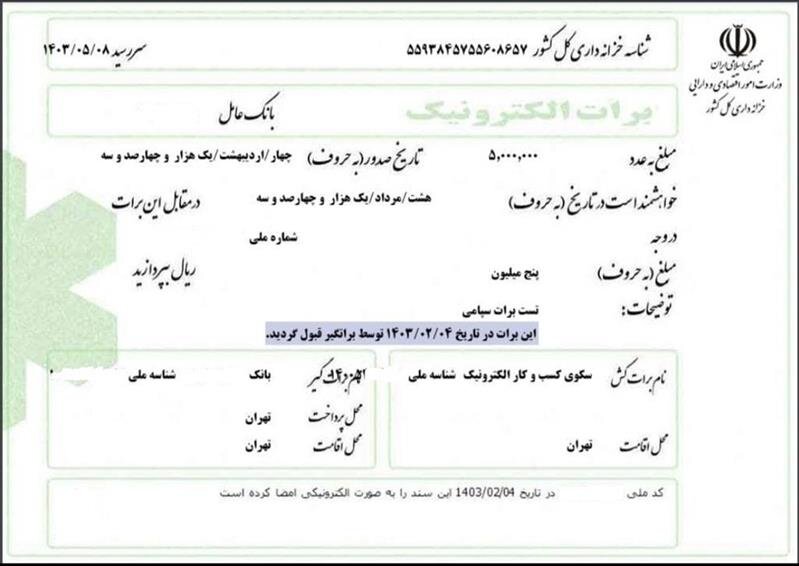 جمهوری اسلامی ایران
وزارت امور اقتصادی و دارایی
خزانه داری کل کشور
شناسه خزانه داری کل کشور ۵۵۹۳۸۴۵۷۵۵۶۰۸۶۵۷ سررسید ۱۴۰۳/۰۵/۰۸
برات الکترونیک بانک عامل
مبلغ به عدد ۵,۰۰۰,۰۰۰ تاریخ صدور (به حروف) چهار/اردیبهشت/یک هزار و چهارصد و سه
خواهشمند است در تاریخ (به حروف) هشت/مرداد/یک هزار و چهارصد و سه در مقابل این برات
در وجه شماره ملی
مبلغ (به حروف) پنج میلیون ریال بپردازید
توضیحات: تست برات سپامی
این برات در تاریخ ۱۴۰۳/۰۲/۰۴ توسط براتگیر قبول گردید.
نام برات کش سکوی کسب و کار الکترونیک شناسه ملی
محل اقامت تهران
برات گیر بانک شناسه ملی
محل پرداخت تهران
محل اقامت تهران
کد ملی در تاریخ 1403/02/04 این سند را به صورت الکترونیکی امضا کرده است